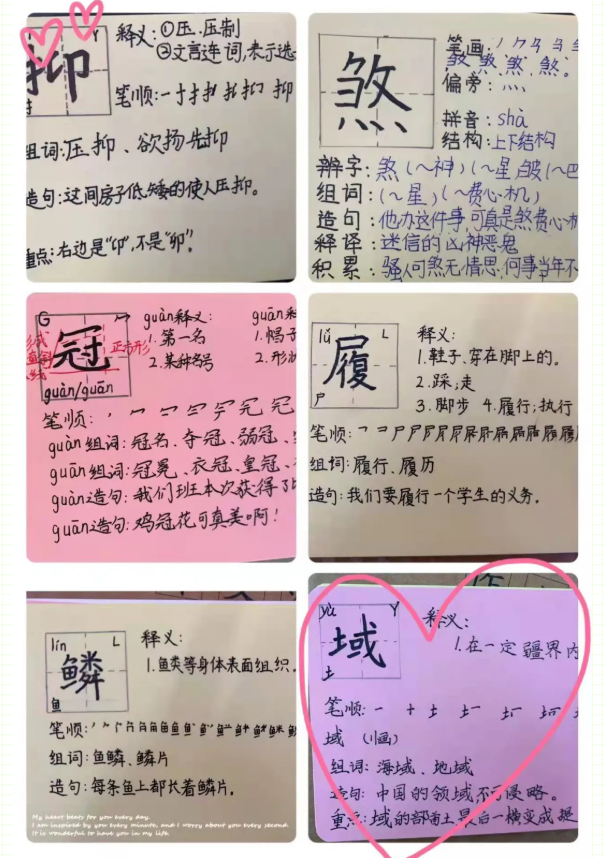 抑
释义：①压、压制
②文言连词，表示选
组词：压抑、欲扬先抑
造句：这间房子低矮的使人压抑。
重点：右边是“卬”，不是“卯”。
煞
笔画：
偏旁：灬
拼音：shà
结构：上下结构
辨字：煞（～神）（～星）皱（～巴
组词：（～星）（～费心机）
造句：他办这件事，可真是煞费心机
释译：迷信的凶神恶鬼
积累：骚人可煞无情思，何事当年不
G
冠
guàn/guān
正方形
guàn释义：
1.第一名
2.某种名号
guān释
1.帽子
2.形
笔顺：
guàn组词：冠名、夺冠、弱冠、
guān组词：冠冕、衣冠、皇冠、
guàn造句：我们班本次获得了
guān造句：鸡冠花可真美啊！
lǚ L
履
尸
释义：
1.鞋子、穿在脚上的。
2.踩；走
3.脚步 4.履行；执行
笔顺：
组词：履行、履历
造句：我们要履行一个学生的义务。
lín L
鳞
鱼
释义：
1.鱼类等身体表面组织．
笔顺：
组词：鱼鳞、鳞片
造句：每条鱼上都长着鳞片。
My heart beats for you every day.
I am inspired by you every minute, and I worry about you every second.
It is wonderful to have you in my life.
yù Y
域
土
释义：
1.在一定疆界内
笔顺：一 十 土
域（11画）
组词：海域、地域
造句：中国的领域不可侵略。
重点：域的部首土最后一横变成提